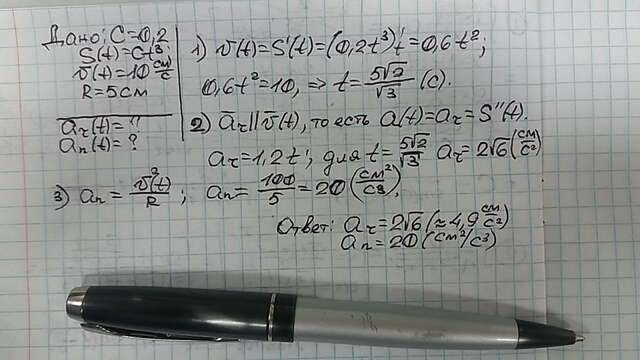 Дано: C=0,2
S(t)=Ct³;
v̄(t)=10 см/с
R=5см
a̅τ(t)=?
an(t)=?
1) v(t)=S'(t)=(0,2t³)'t=0,6t²;
0,6t²=10, => t=5√2/√3 (с).
2) a̅τ||v̄(t), то есть a(t)=aτ=S''(t).
aτ=1,2t; для t=5√2/√3 aτ=2√6(см/с²)
3) an=v²(t)/R; an=100/5=20(см²/с³),
Ответ: aτ=2√6(≈4,9 см/с²)
an=20(см²/с³)